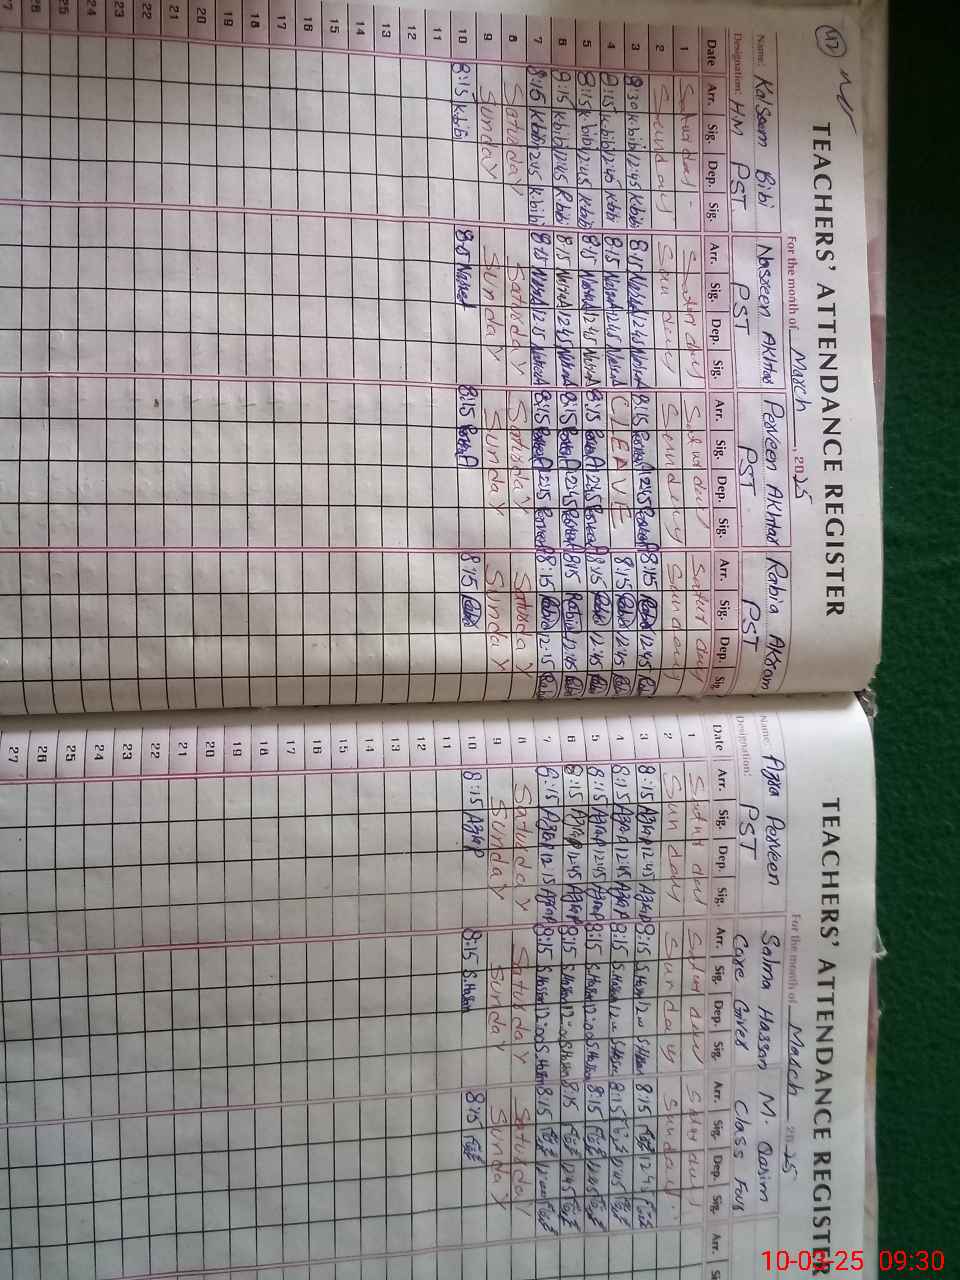 47
TEACHERS' ATTENDANCE REGISTER
For the month of March, 2025
Name: Kalsoom Bibi Nasreen Akhtar Perveen Akhtar Rabia Akram
Designation: HM PST PST PST PST
Date Arr. Sig. Dep. Sig. Arr. Sig. Dep. Sig. Arr. Sig. Dep. Sig. Arr. Sig. Dep. Sig
1 Saturday Saturday Saturday Saturday
2 Sunday Sunday Sunday Sunday
3 8:30 K.bibi 12:45 K.bibi 8:15 12:45 8:15 12:45 8:15 12:45
4 8:15 K.bibi 12:45 K.bibi 8:15 12:45 C LEAVE 8:15 12:45
5 8:15 K.bibi 12:45 K.bibi 8:15 12:45 8:15 12:45 8:15 12:45
6 8:15 K.bibi 12:45 K.bibi 8:15 12:45 8:15 12:45 8:15 Rabia 12:45
7 8:15 K.bibi 12:45 K.bibi 8:15 12:15 8:15 12:15 8:15 Rabia 12:15
8 Saturday Saturday Saturday Saturday
9 Sunday Sunday Sunday Sunday
10 8:15 K.bibi 8:15 8:15 8:15
11
12
13
14
15
16
17
18
19
20
21
22
23
24
25
26
27
TEACHERS' ATTENDANCE REGISTER
For the month of March 2025
Name: Azra Perveen Salma Hassan M. Qasim
Designation: PST Care Giver Class Four
Date Arr. Sig. Dep. Sig. Arr. Sig. Dep. Sig. Arr. Sig. Dep. Sig. Arr. Si
1 Saturday Saturday Saturday
2 Sunday Sunday Sunday
3 8:15 Azra P 12:45 Azra P 8:15 S.Hassan 12:00 S.Hassan 8:15
4 8:15 Azra P 12:45 Azra P 8:15 S.Hassan 12:00 S.Hassan 8:15 12:45
5 8:15 Azra P 12:45 Azra P 8:15 S.Hassan 12:00 S.Hassan 8:15 12:45
6 8:15 Azra P 12:45 Azra P 8:15 S.Hassan 12:00 S.Hassan 8:15 12:45
7 8:15 Azra P 12:15 Azra P 8:15 S.Hassan 12:00 S.Hassan 8:15 12:00
8 Saturday Saturday Saturday
9 Sunday Sunday Sunday
10 8:15 Azra P 8:15 S.Hassan 8:15
11
12
13
14
15
16
17
18
19
20
21
22
23
24
25
26
27
10-03-25 09:30